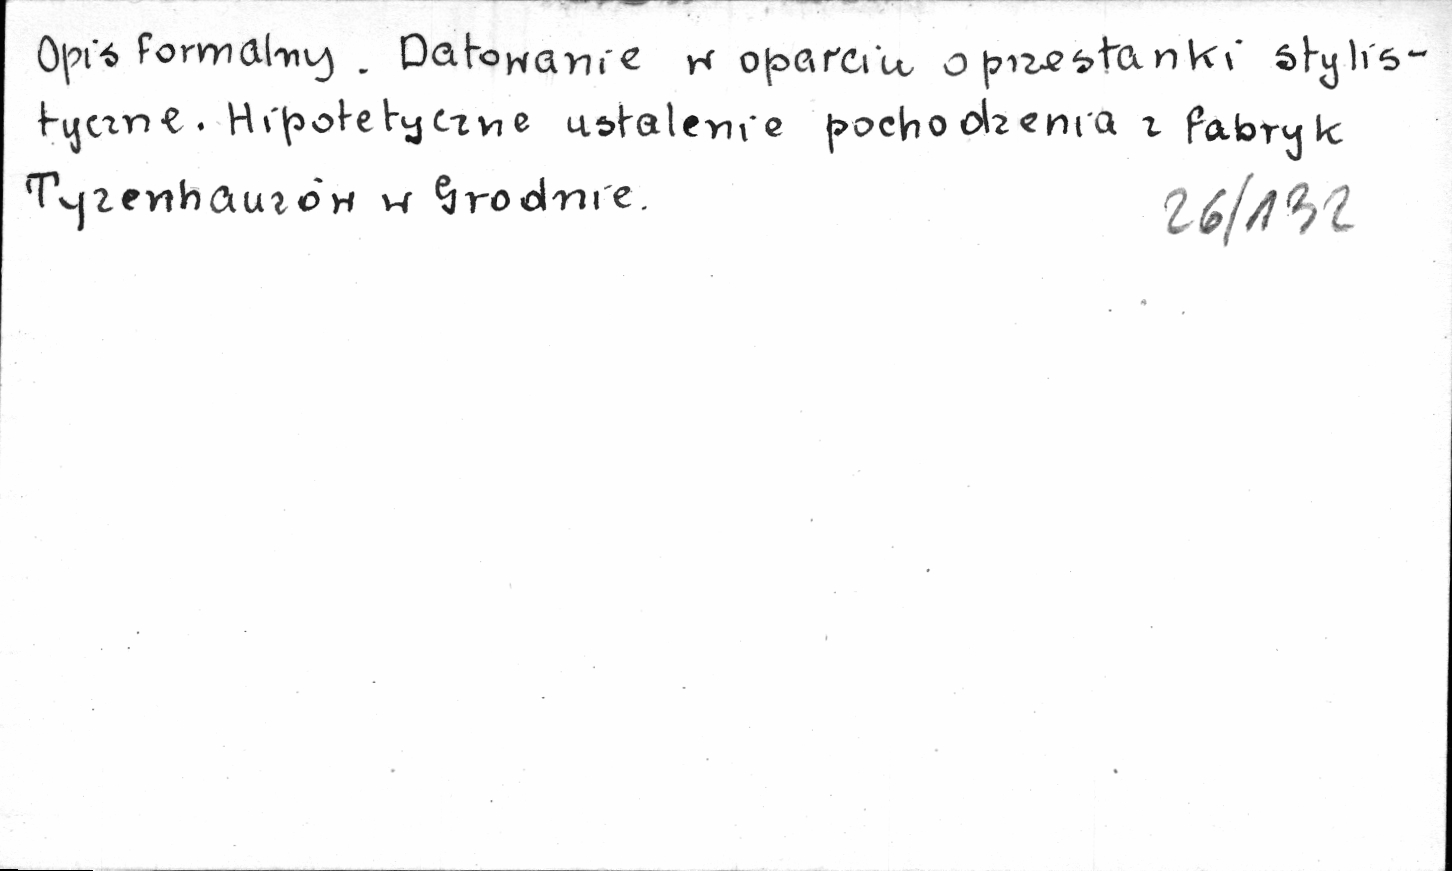 Opis formalny. Datowanie w oparciu o przesłanki stylis-
tyczne. Hipotetyczne ustalenie pochodzenia z fabryk
Tyzenhauzów w Grodnie.
26/132